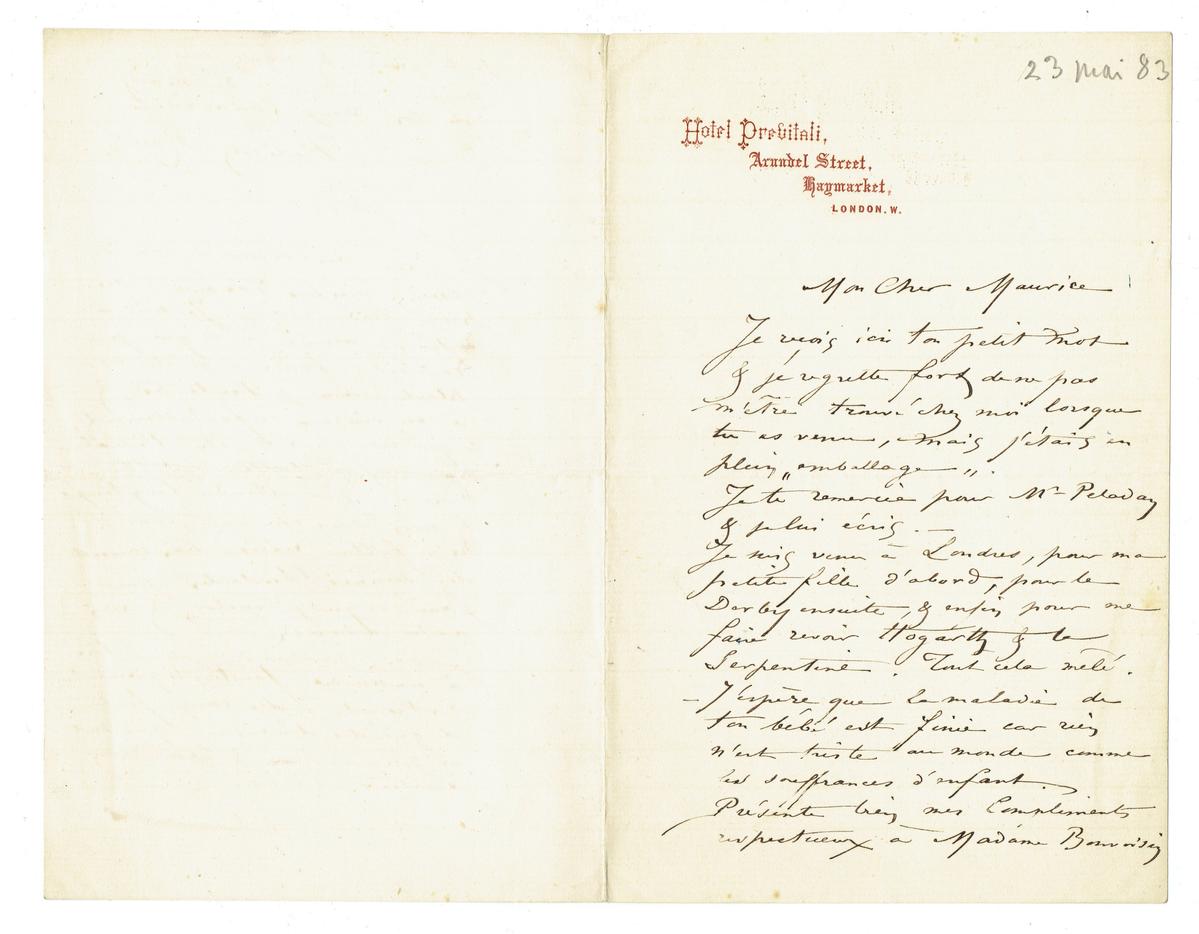 23 mai 83
Hotel Previtali,
Arundel Street,
Haymarket,
LONDON. W.
Mon Cher Maurice
Je reçois ici ton petit mot
& je regrette fort de ne pas
m'être trouvé chez moi lorsque
tu es venu, mais j'étais en
plein „emballage„.
Je te remercie pour Mr Peladan
& je lui écris. —
Je suis venu à Londres, pour ma
petite fille d'abord, pour le
Derby ensuite, & enfin pour me
faire revoir Hogarth & la
Serpentine. Tout cela mêlé.
— J'espère que la maladie de
ton bébé est finie car rien
n'est triste au monde comme
les souffrances d'enfant.
Présente bien mes Compliments
respectueux à Madame Bonvoisin